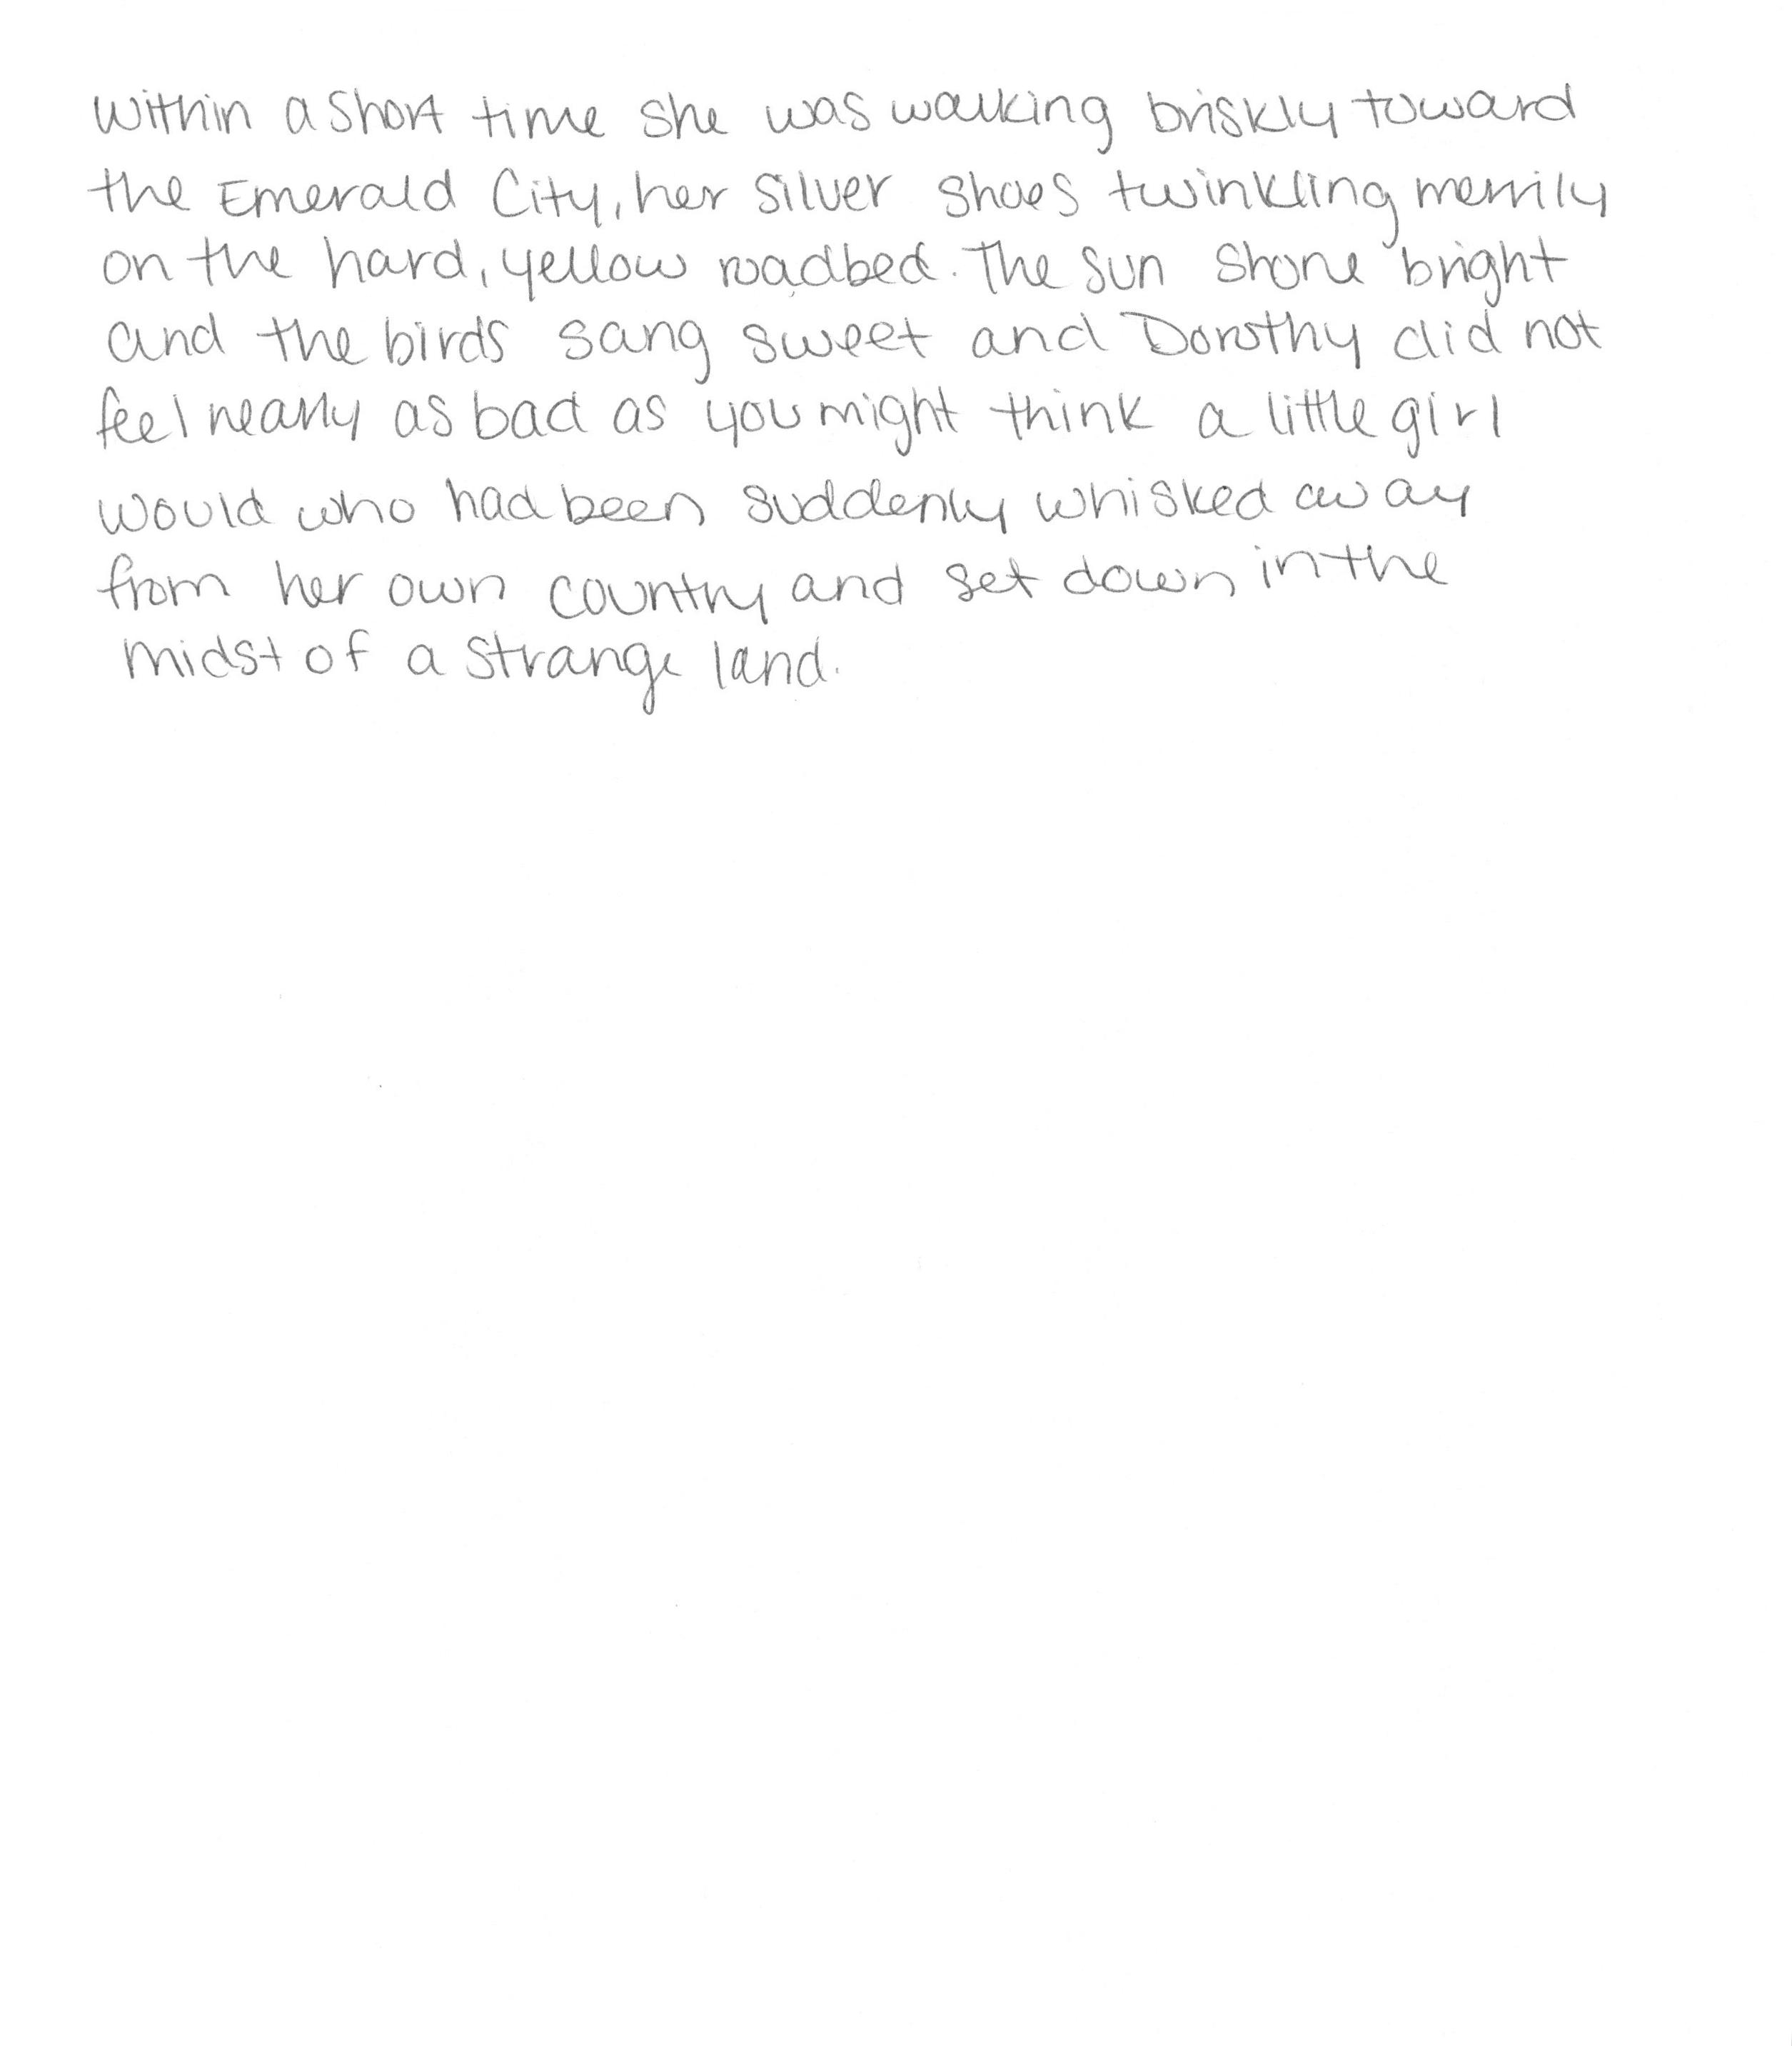 Within a short time she was walking briskly toward
the Emerald City, her silver shoes twinkling merrily
on the hard, yellow roadbed. The sun shone bright
and the birds sang sweet and Dorothy did not
feel nearly as bad as you might think a little girl
would who had been suddenly whisked away
from her own country and set down in the
midst of a strange land.